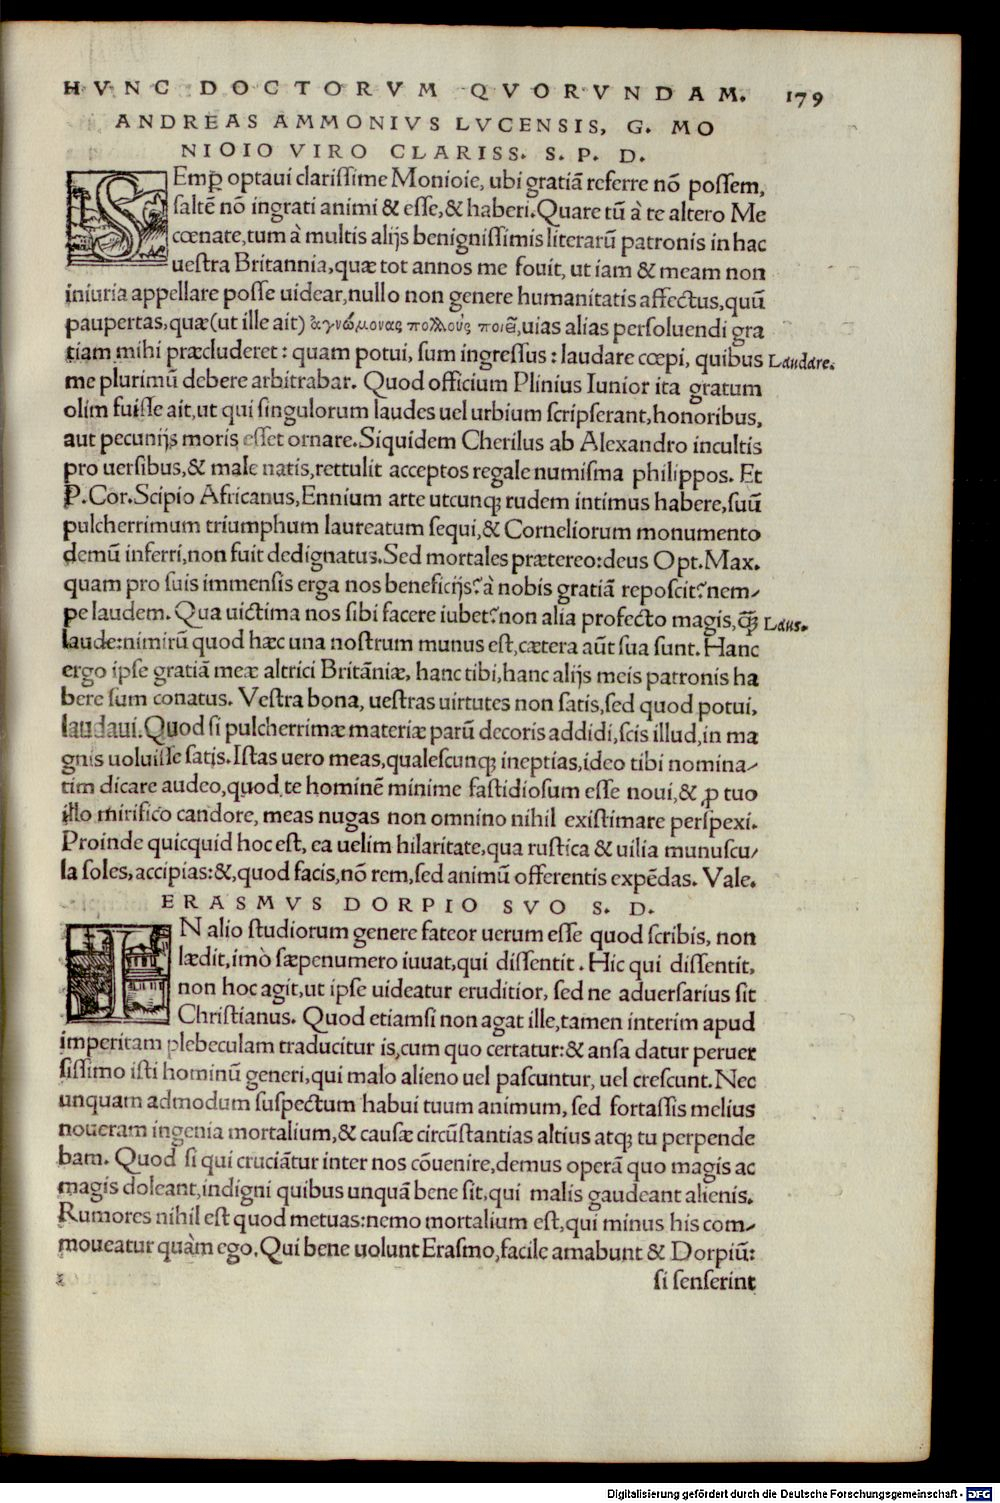 HVNC DOCTORVM QVORVNDAM. 179
ANDREAS AMMONIVS LVCENSIS, G. MO
NIOIO VIRO CLARISS. S. P. D.
SEmꝑ optaui clarissime Monioie, ubi gratiã referre nõ possem,
saltẽ nõ ingrati animi & esse, & haberi. Quare tũ à te altero Me
cœnate, tum à multis alijs benignissimis literarũ patronis in hac
uestra Britannia, quæ tot annos me fouit, ut iam & meam non
iniuria appellare posse uidear, nullo non genere humanitatis affectus, quũ
paupertas, quæ (ut ille ait) ἀγνώμονας πολλοὺς ποιεῖ, uias alias persoluendi gra
tiam mihi præcluderet: quam potui, sum ingressus: laudare cœpi, quibus Laudare.
me plurimũ debere arbitrabar. Quod officium Plinius Iunior ita gratum
olim fuisse ait, ut qui singulorum laudes uel urbium scripserant, honoribus,
aut pecunijs moris esset ornare. Siquidem Cherilus ab Alexandro incultis
pro uersibus, & male natis, rettulit acceptos regale numisma philippos. Et
P. Cor. Scipio Africanus, Ennium arte utcunqꝫ rudem intimus habere, suũ
pulcherrimum triumphum laureatum sequi, & Corneliorum monumento
demũ inferri, non fuit dedignatus. Sed mortales prætereo: deus Opt. Max.
quam pro suis immensis erga nos beneficijs? à nobis gratiã reposcit? nem-
pe laudem. Qua uictima nos sibi facere iubet? non alia profecto magis, q̃ꝫ Laus.
laude: nimirũ quod hæc una nostrum munus est, cætera aũt sua sunt. Hanc
ergo ipse gratiã meæ altrici Britãniæ, hanc tibi, hanc alijs meis patronis ha
bere sum conatus. Vestra bona, uestras uirtutes non satis, sed quod potui,
laudaui. Quod si pulcherrimæ materiæ parũ decoris addidi, scis illud, in ma
gnis uoluisse satis. Istas uero meas, qualescunqꝫ ineptias, ideo tibi nomina-
tim dicare audeo, quod te hominẽ minime fastidiosum esse noui, & ꝓ tuo
illo mirifico candore, meas nugas non omnino nihil existimare perspexi.
Proinde quicquid hoc est, ea uelim hilaritate, qua rustica & uilia munuscu-
la soles, accipias: &, quod facis, nõ rem, sed animũ offerentis expẽdas. Vale.
ERASMVS DORPIO SVO S. D.
IN alio studiorum genere fateor uerum esse quod scribis, non
lædit, imò sæpenumero iuuat, qui dissentit. Hic qui dissentit,
non hoc agit, ut ipse uideatur eruditior, sed ne aduersarius sit
Christianus. Quod etiamsi non agat ille, tamen interim apud
imperitam plebeculam traducitur is, cum quo certatur: & ansa datur peruer
sissimo isti hominũ generi, qui malo alieno uel pascuntur, uel crescunt. Nec
unquam admodum suspectum habui tuum animum, sed fortassis melius
noueram ingenia mortalium, & causæ circũstantias altius atqꝫ tu perpende
bam. Quod si qui cruciãtur inter nos cõuenire, demus operã quo magis ac
magis doleant, indigni quibus unquã bene sit, qui malis gaudeant alienis.
Rumores nihil est quod metuas: nemo mortalium est, qui minus his com-
moueatur quàm ego. Qui bene uolunt Erasmo, facile amabunt & Dorpiũ:
si senserint
Digitalisierung gefördert durch die Deutsche Forschungsgemeinschaft - DFG